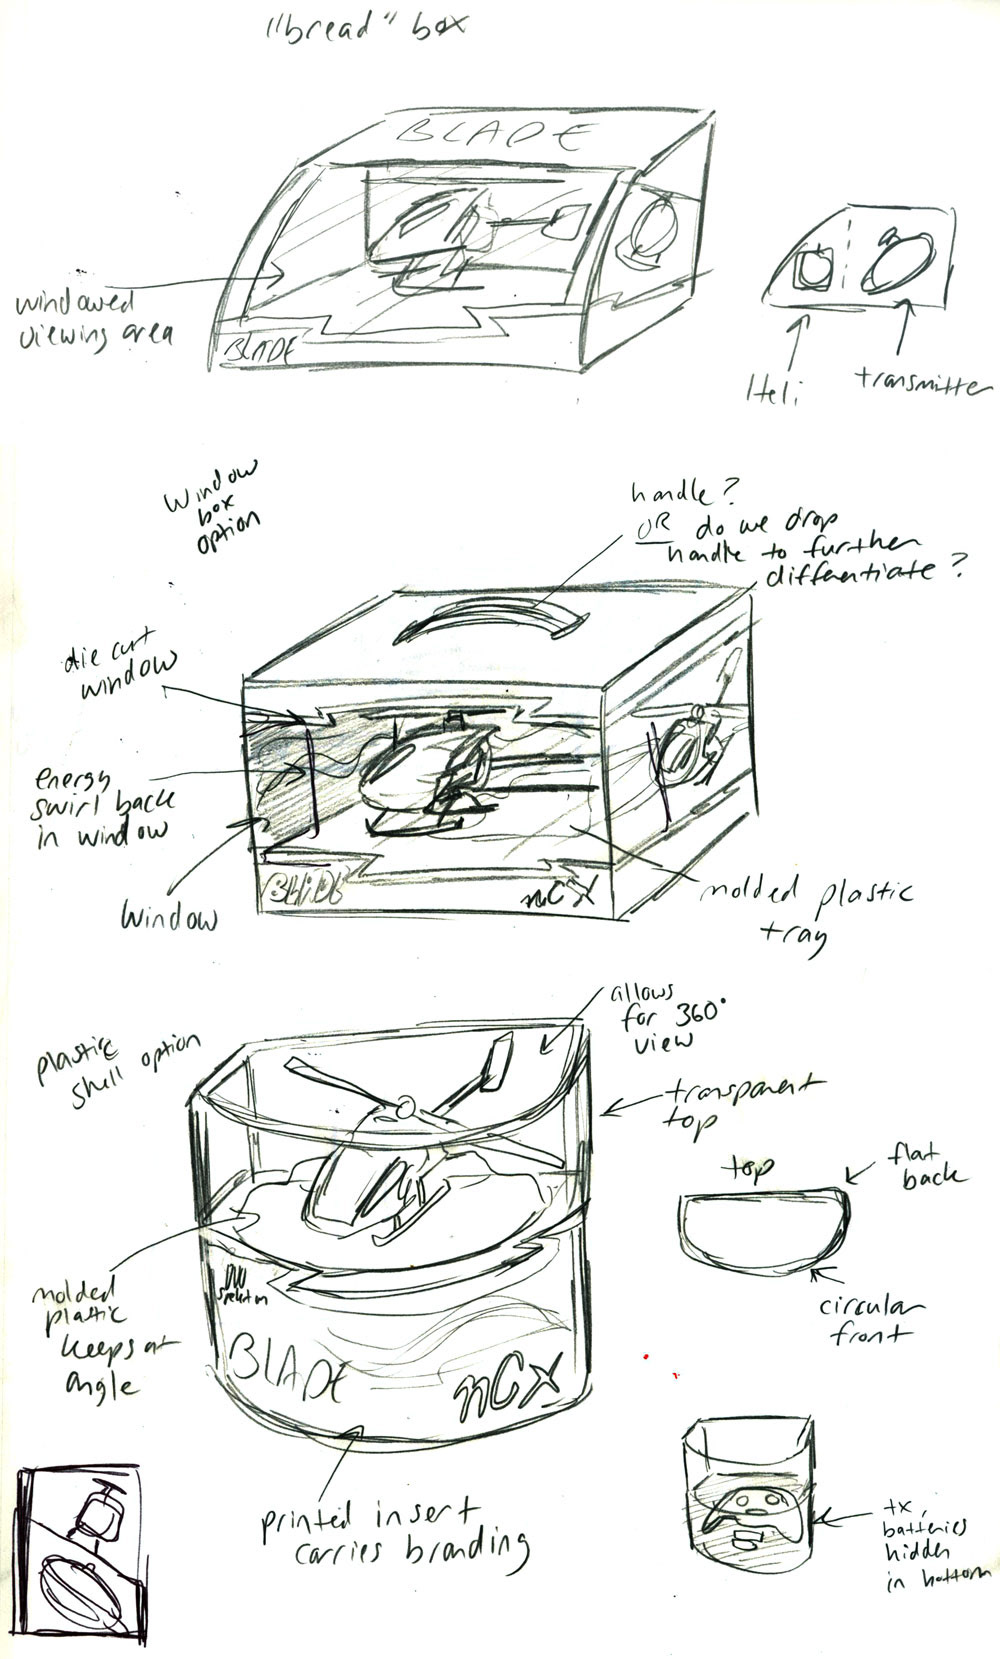 "bread" box
BLADE
windowed
viewing area
BLADE
Heli
transmitter
Window
box
option
handle?
OR do we drop
handle to further
differentiate?
die cut
window
energy
swirl back
in window
window
BLADE
nCX
molded plastic
tray
plastic
shell option
allows
for 360°
view
transparent
top
top
flat
back
circular
front
molded
plastic
keeps at
angle
BLADE
nCX
printed insert
carries branding
tx,
batteries
hidden
in bottom